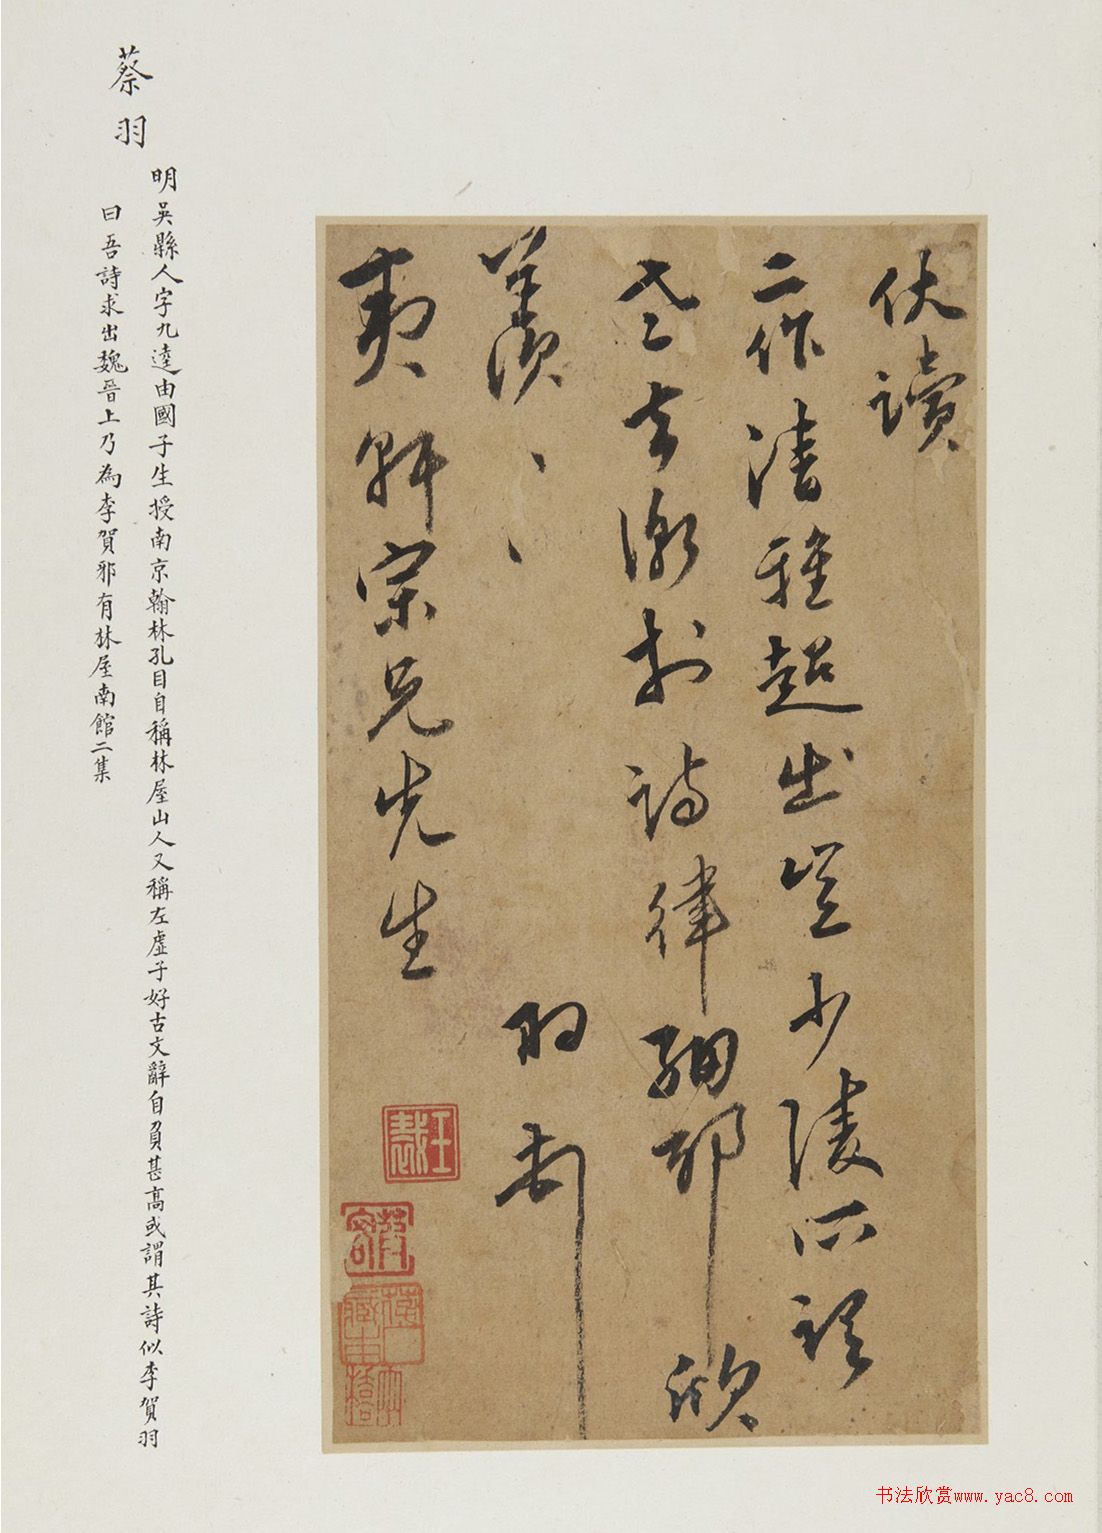 伏讀
二作清雅超出豈少陵所謂
老去漸於詩律細耶欣
羨、、
羽
夷軒宗兄先生
蔡羽
明吳縣人字九逵由國子生授南京翰林孔目自稱林屋山人又稱左虛子好古文辭自負甚高或謂其詩似李賀羽
曰吾詩求出魏晉上乃為李賀邪有林屋南館二集
书法欣赏www.yac8.com